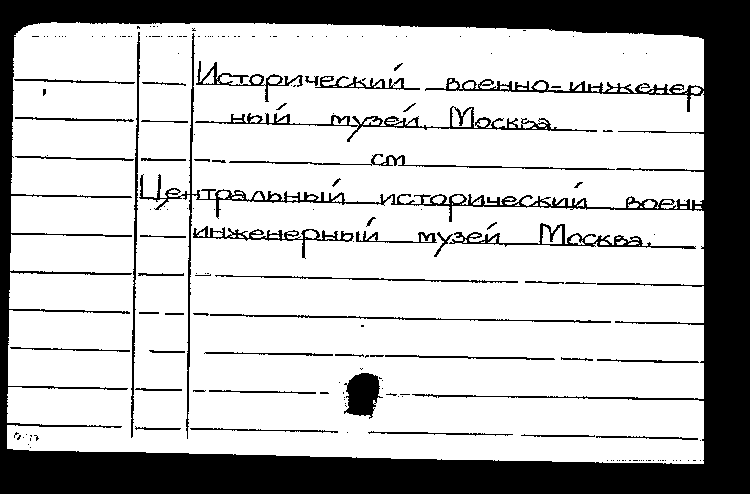 Исторический военно-инженер
ный музей, Москва.
см
Центральный исторический военн
инженерный музей, Москва.